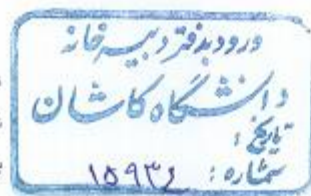 ورود بدفتر دبیرخانه
دانشگاه کاشان
تاریخ :
شماره : ۱۵۹۳۶